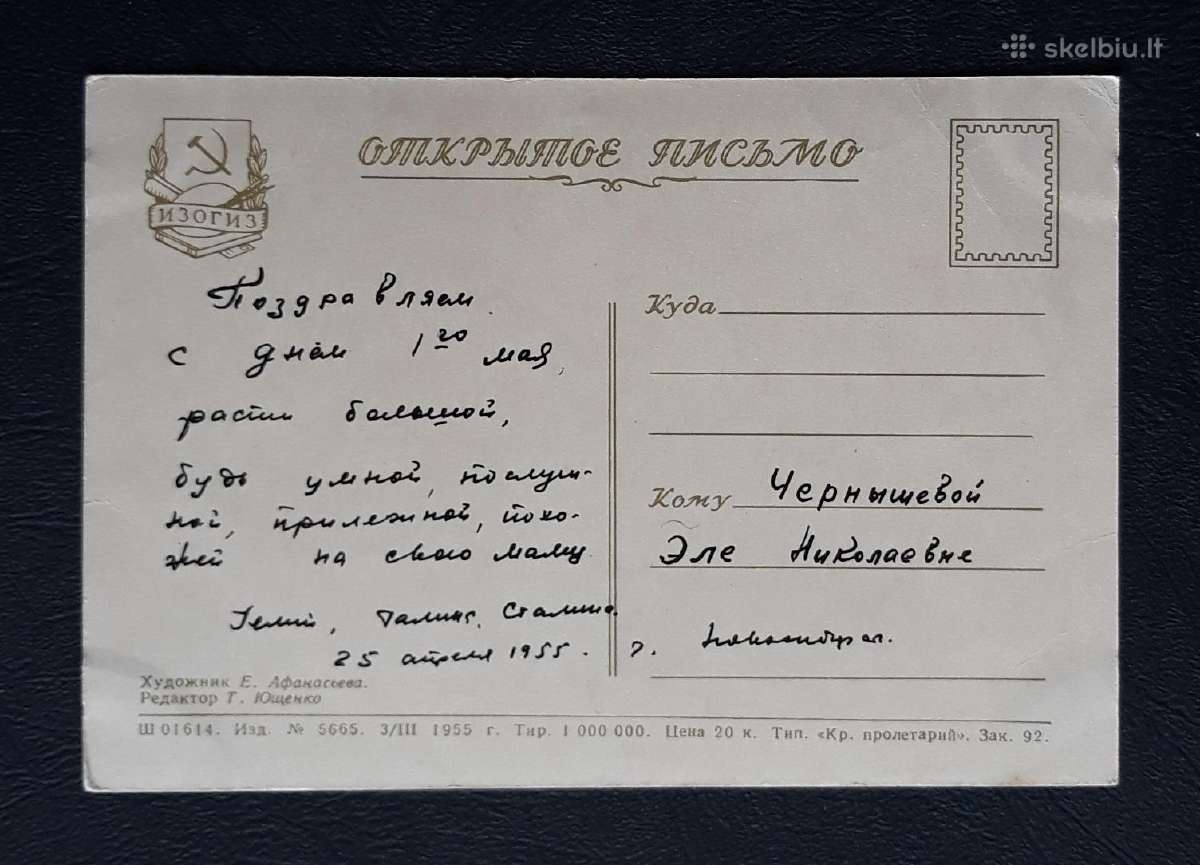 skelbiu.lt
ОТКРЫТОЕ ПИСЬМО
ИЗОГИЗ
Поздравляем
с днём 1го мая,
расти большой,
будь умной, послуш-
ной, прилежной, похо-
жей на свою маму
Гелий, Галина, Сталина
25 апреля 1955.
Куда
Кому Чернышевой
Эле Николаевне
г. Новосибирск.
Художник Е. Афанасьева.
Редактор Т. Ющенко
Ш 01614. Изд. № 5665. 3/III 1955 г. Тир. 1 000 000. Цена 20 к. Тип. «Кр. пролетарий». Зак. 92.